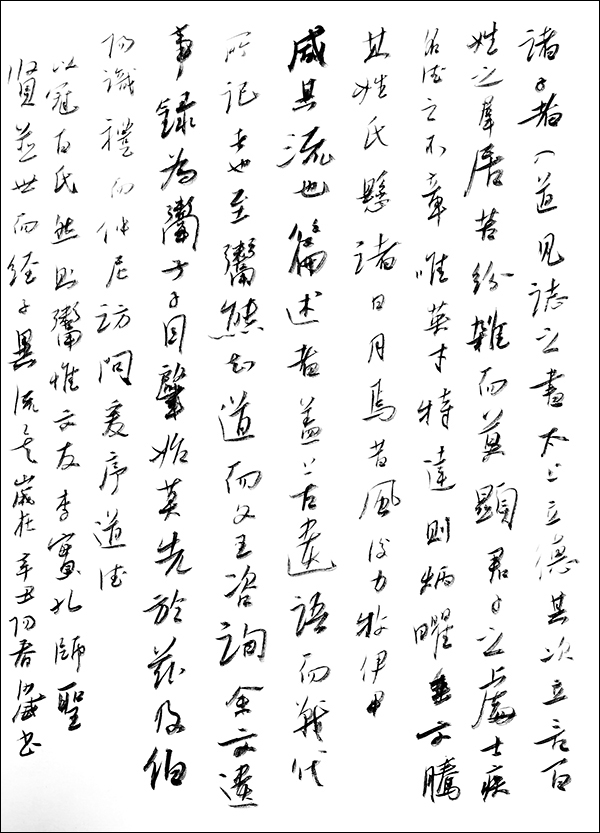 諸子者入道見誌之書太上立德其次立言百
姓之羣居苦紛雜而莫顯君子之處士疾
名德之不章唯英才特達則炳曜垂文騰
其姓氏懸諸日月焉昔風後力牧伊尹
咸其流也篇述者蓋上古遺語而戰代
所記者也至鬻熊知道而文王咨詢余文遺
事錄為鬻子子目肇始莫先於茲及伯
陽識禮而仲尼訪問爰序道德
以冠百氏然則鬻惟文友李實孔師聖
賢並世而經子異流矣歲在辛丑陽春書